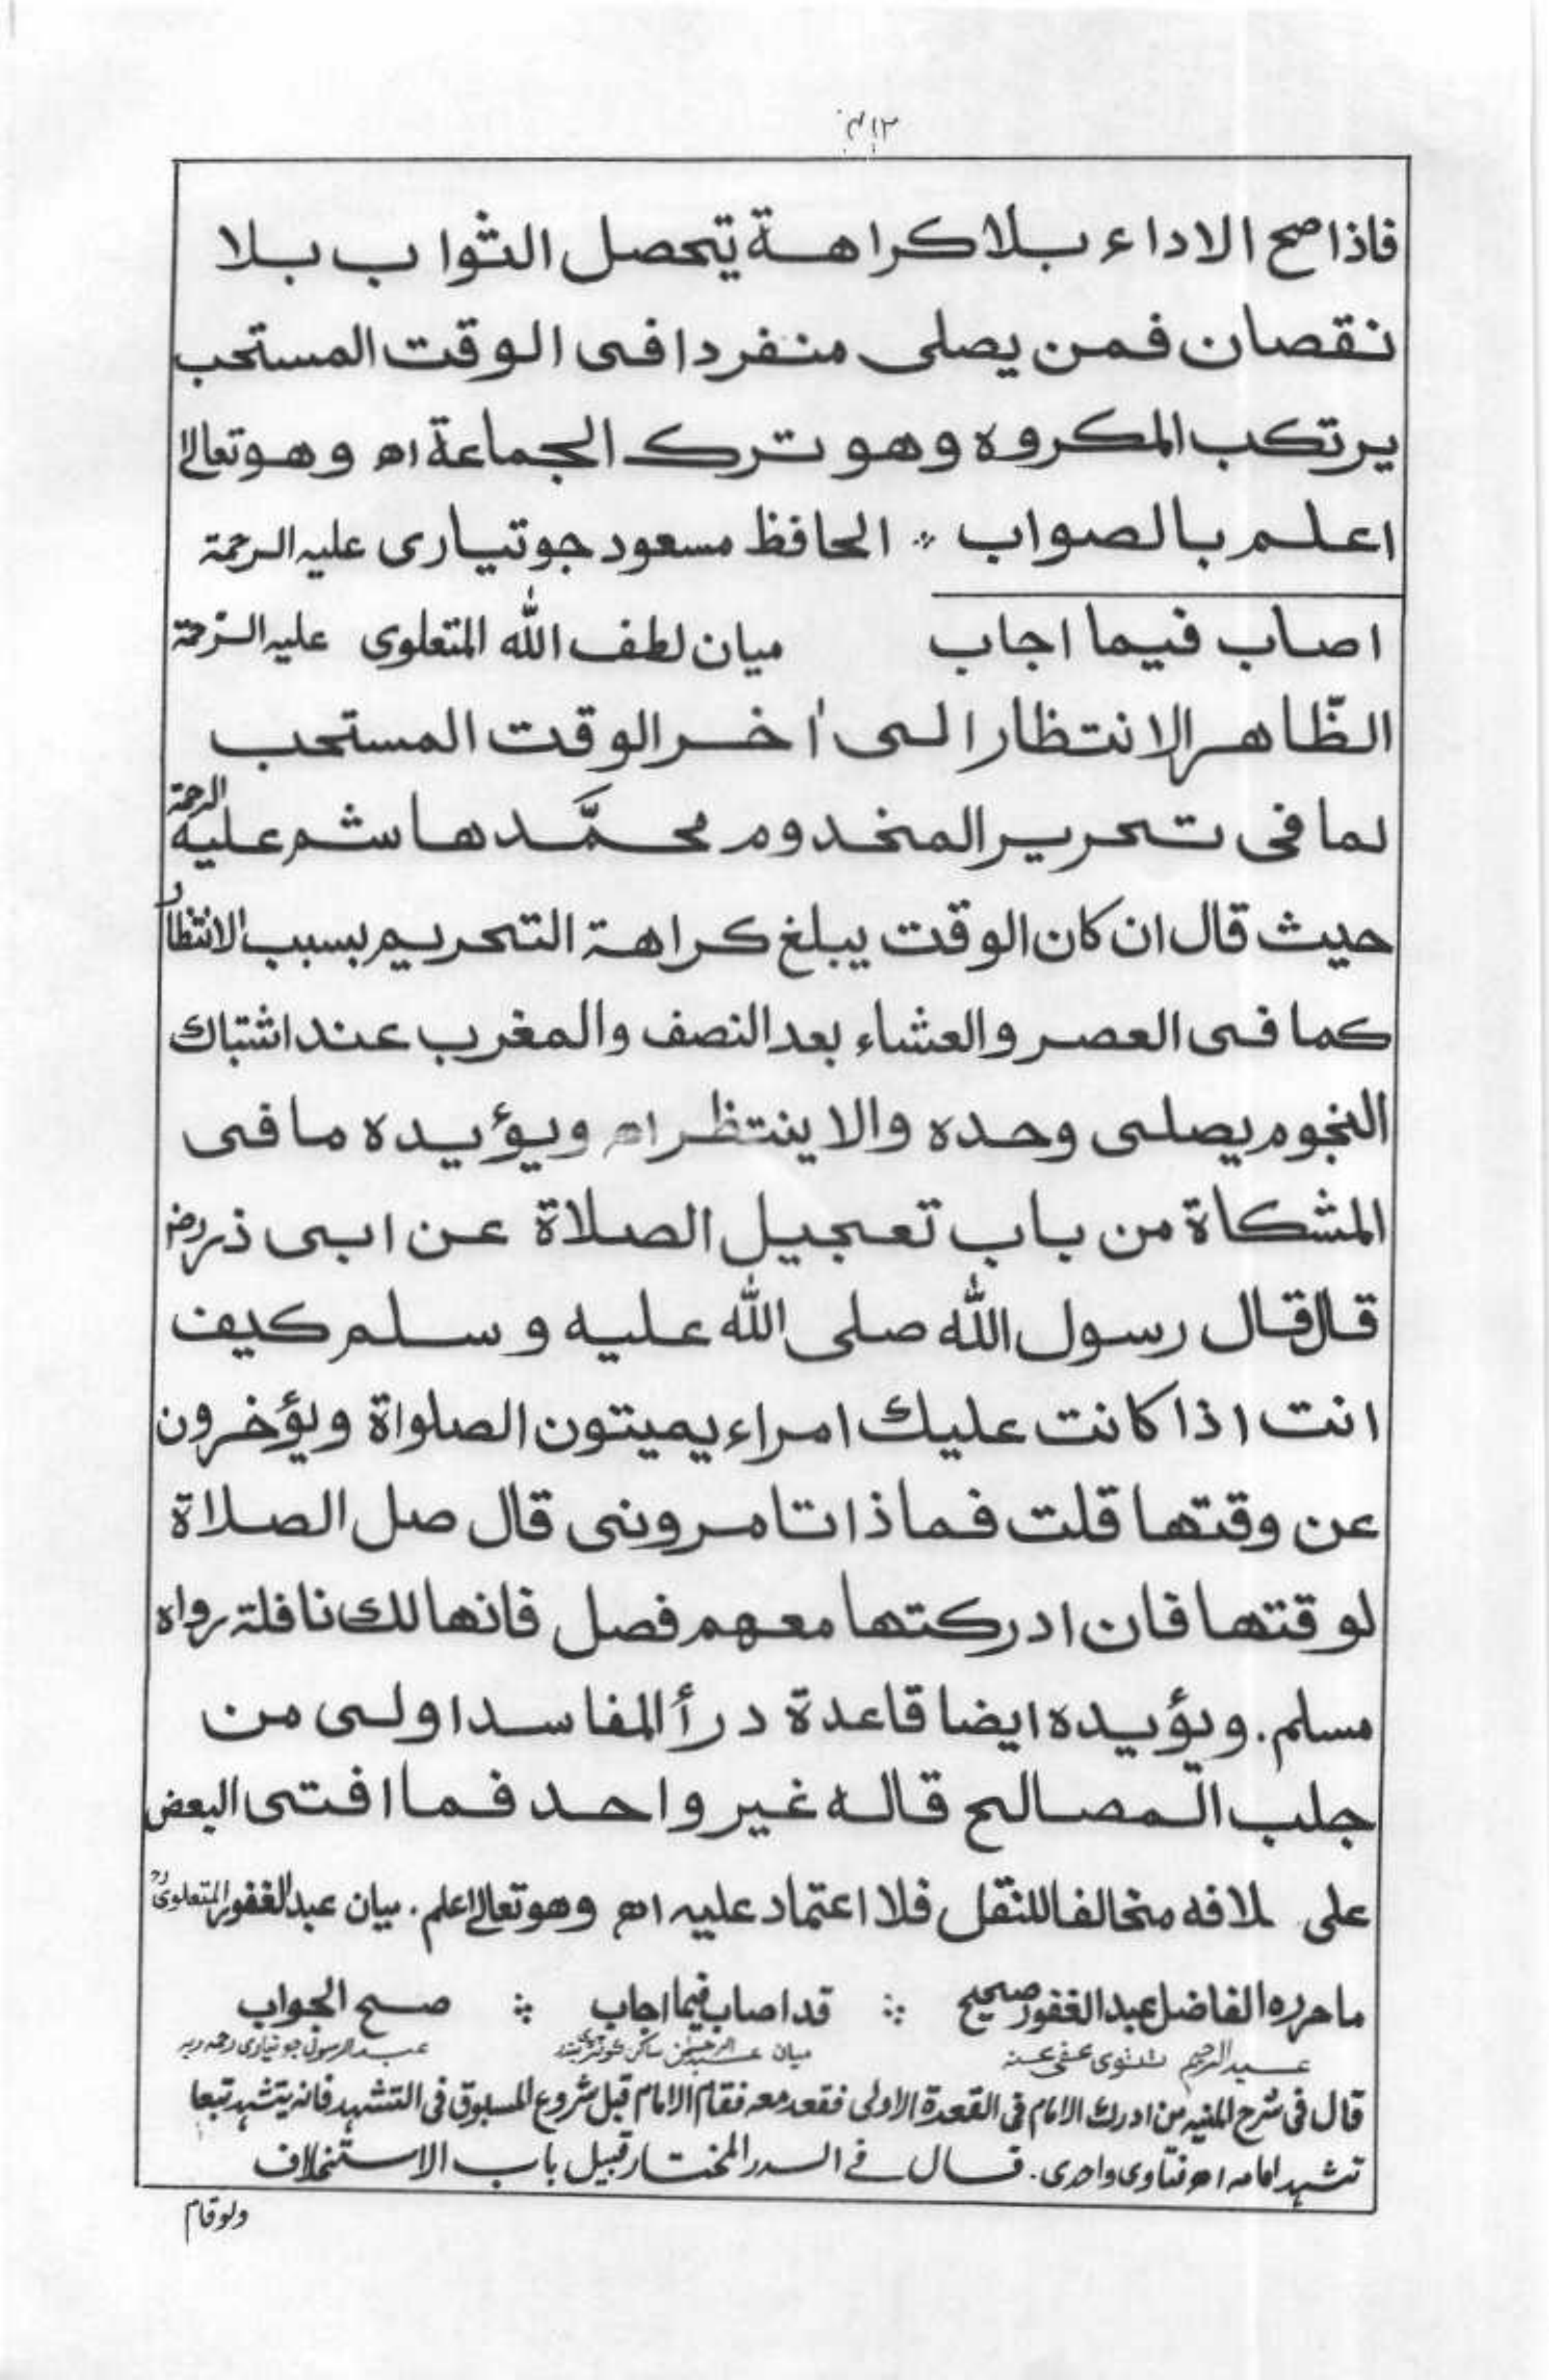 فاذا صح الاداء بلا كراهة يتحصل الثواب بلا
نقصان فمن يصلى منفردا فى الوقت المستحب
يرتكب المكروه وهو ترك الجماعة اھ وهو تعالىٰ
اعلم بالصواب ؞ الحافظ مسعود جوتيارى عليہ الرحمة
اصاب فيما اجاب ميان لطف الله المتعلوى عليہ الرّحمة
الظّاهر الانتظار الى اٰخر الوقت المستحب
لما فى تحرير المخدوم محمَّد هاشم عليه الرحمة
حيث قال ان كان الوقت يبلغ كراهة التحريم بسبب الانتظار
كما فى العصر والعشاء بعد النصف والمغرب عند اشتباك
النجوم يصلى وحده والا ينتظر اھ ويؤيده ما فى
المشكاة من باب تعجيل الصلاة عن ابى ذر رض
قال قال رسول الله صلى الله عليه وسلم كيف
انت اذا كانت عليك امراء يميتون الصلواة ويؤخرون
عن وقتها قلت فماذا تامرونى قال صل الصلاة
لوقتها فان ادركتها معهم فصل فانها لك نافلة رواه
مسلم. ويؤيده ايضا قاعدة درأ المفاسد اولى من
جلب المصالح قاله غير واحد فما افتى البعض
على لافه مخالفا للنقل فلا اعتماد عليہ اھ وهو تعالىٰ اعلم. ميان عبد الغفور المتعلوى رح
ما حرره الفاضل عبد الغفور صحيح ؞ قد اصاب فيما اجاب ؞ صح الجواب
عبد الرحيم عفى عنہ ميان ساكن عبد الرسول جوتيارى
قال فى شرح المنيہ من ادرك الامام فى القعدة الاولى فقعد معہ فقام الامام قبل شروع المسبوق فى التشهد فانہ يتشهد تبعا
تشهد امامہ اھ فتاوى واحدى. قال فے الدر المختار قبيل باب الاستخلاف
ولو قام